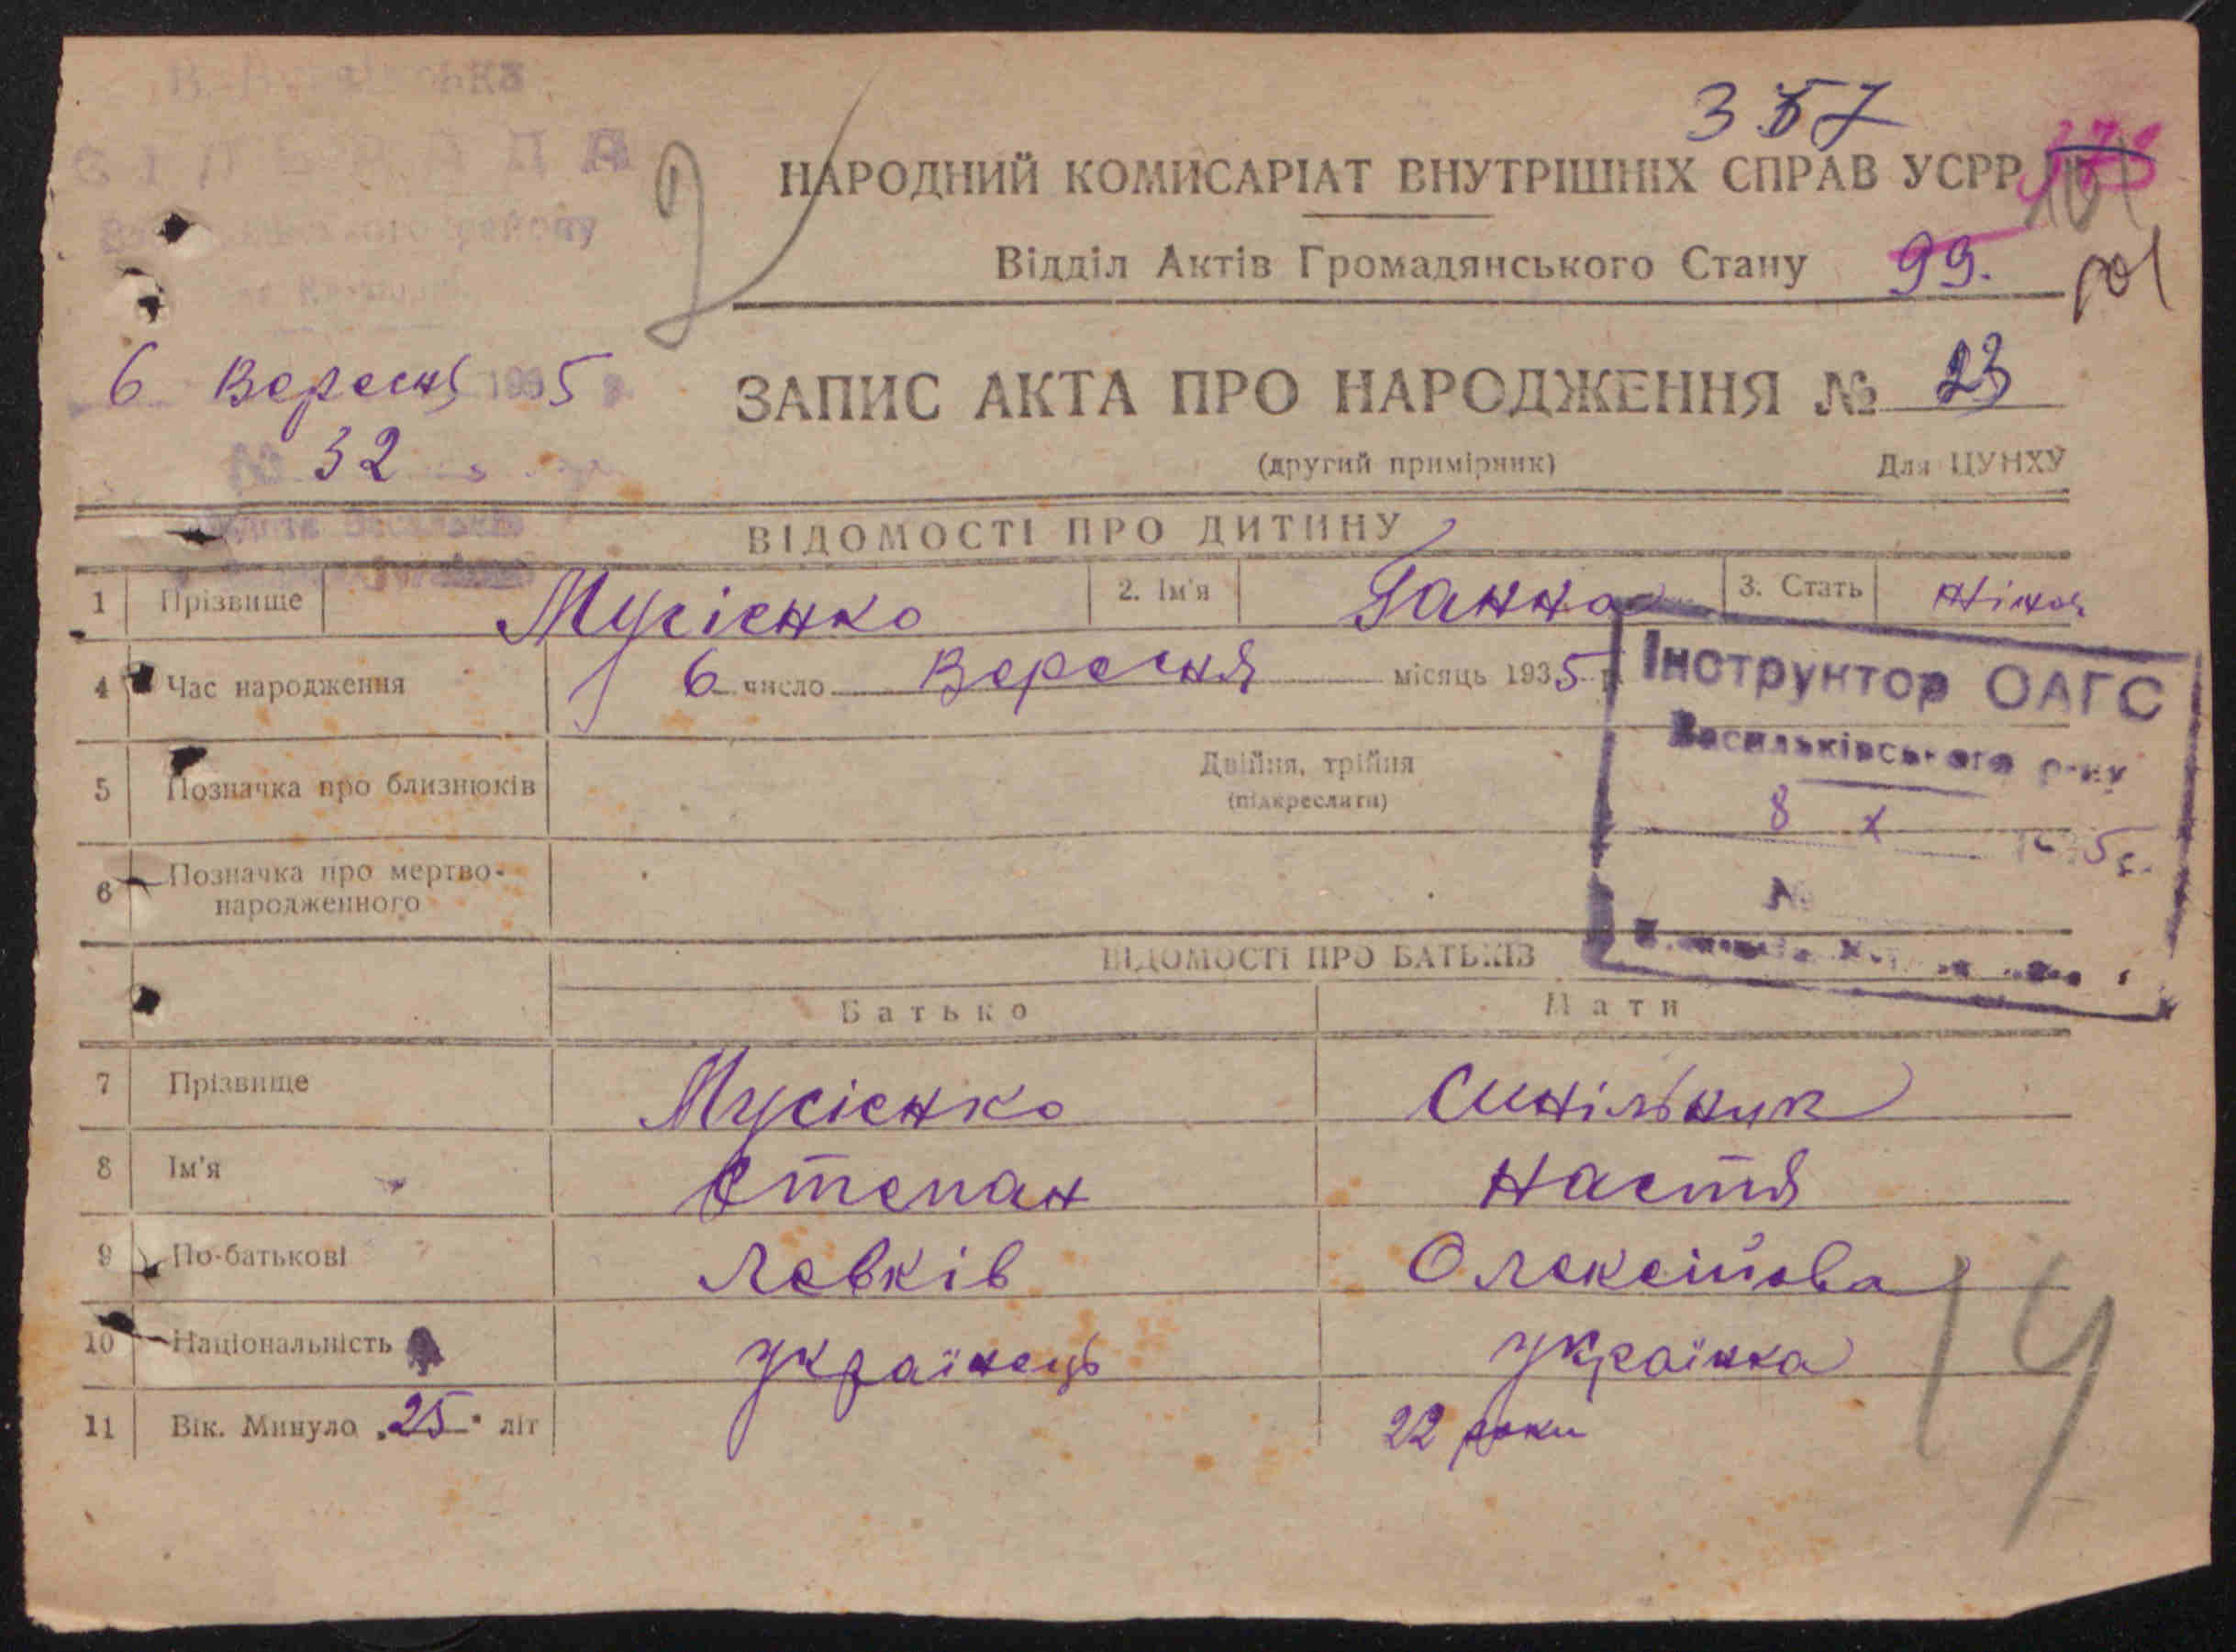 357
НАРОДНИЙ КОМИСАРІАТ ВНУТРІШНІХ СПРАВ УСРР
СІЛЬРАДА
району
Відділ Актів Громадянського Стану 99.
101
6 Вересня 1935 р.
№ 32
ЗАПИС АКТА ПРО НАРОДЖЕННЯ № 23
(другий примірник) Для ЦУНХУ
ВІДОМОСТІ ПРО ДИТИНУ
1 Прізвище Мусієнко 2. Ім'я Ганна 3. Стать жіноч
4 Час народження 6 число Вересня місяць 1935 р.
Інструктор ОАГС
Васильківського р-ну
8 X 1935 р.
№
5 Позначка про близнюків Двійня, трійня
(підкреслити)
6 Позначка про мертво-
народженного
ВІДОМОСТІ ПРО БАТЬКІВ
Батько Мати
7 Прізвище Мусієнко
8 Ім'я Степан Настя
9 По-батькові Левків Олексійова
10 Національність українець українка
11 Вік. Минуло „25" літ 22 роки
14